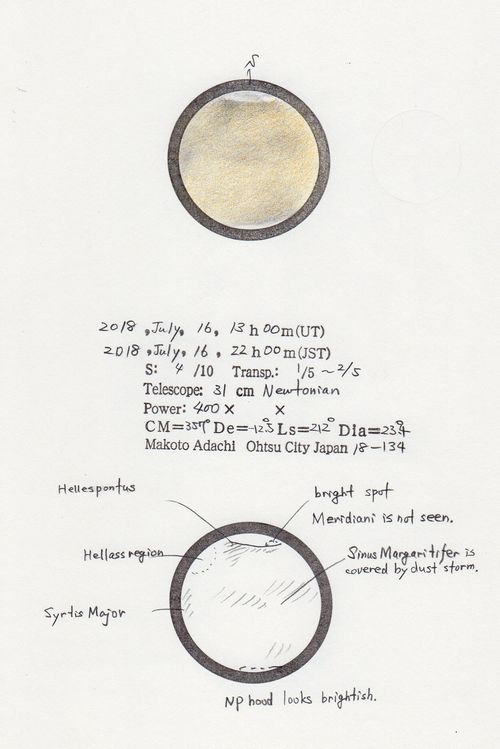 S
2018, July, 16, 13 h 00 m (UT)
2018, July, 16, 22 h 00 m (JST)
S: 4 /10 Transp.: 1/5 ~ 2/5
Telescope: 31 cm Newtonian
Power: 400 × ×
CM=357° De=-12.5° Ls=212° Dia=23.4
Makoto Adachi Ohtsu City Japan 18-134
Hellespontus
bright spot
Meridiani is not seen.
Hellass region
Sinus Margaritifer is
covered by dust storm.
Syrtis Major
NP hood looks brightish.